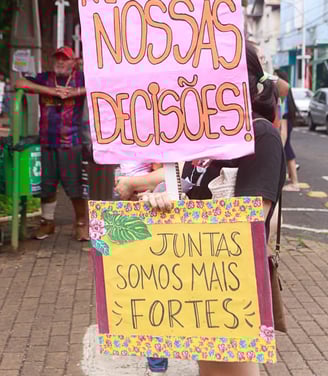 NOSSAS
DECISÕES!
JUNTAS
SOMOS MAIS
FORTES